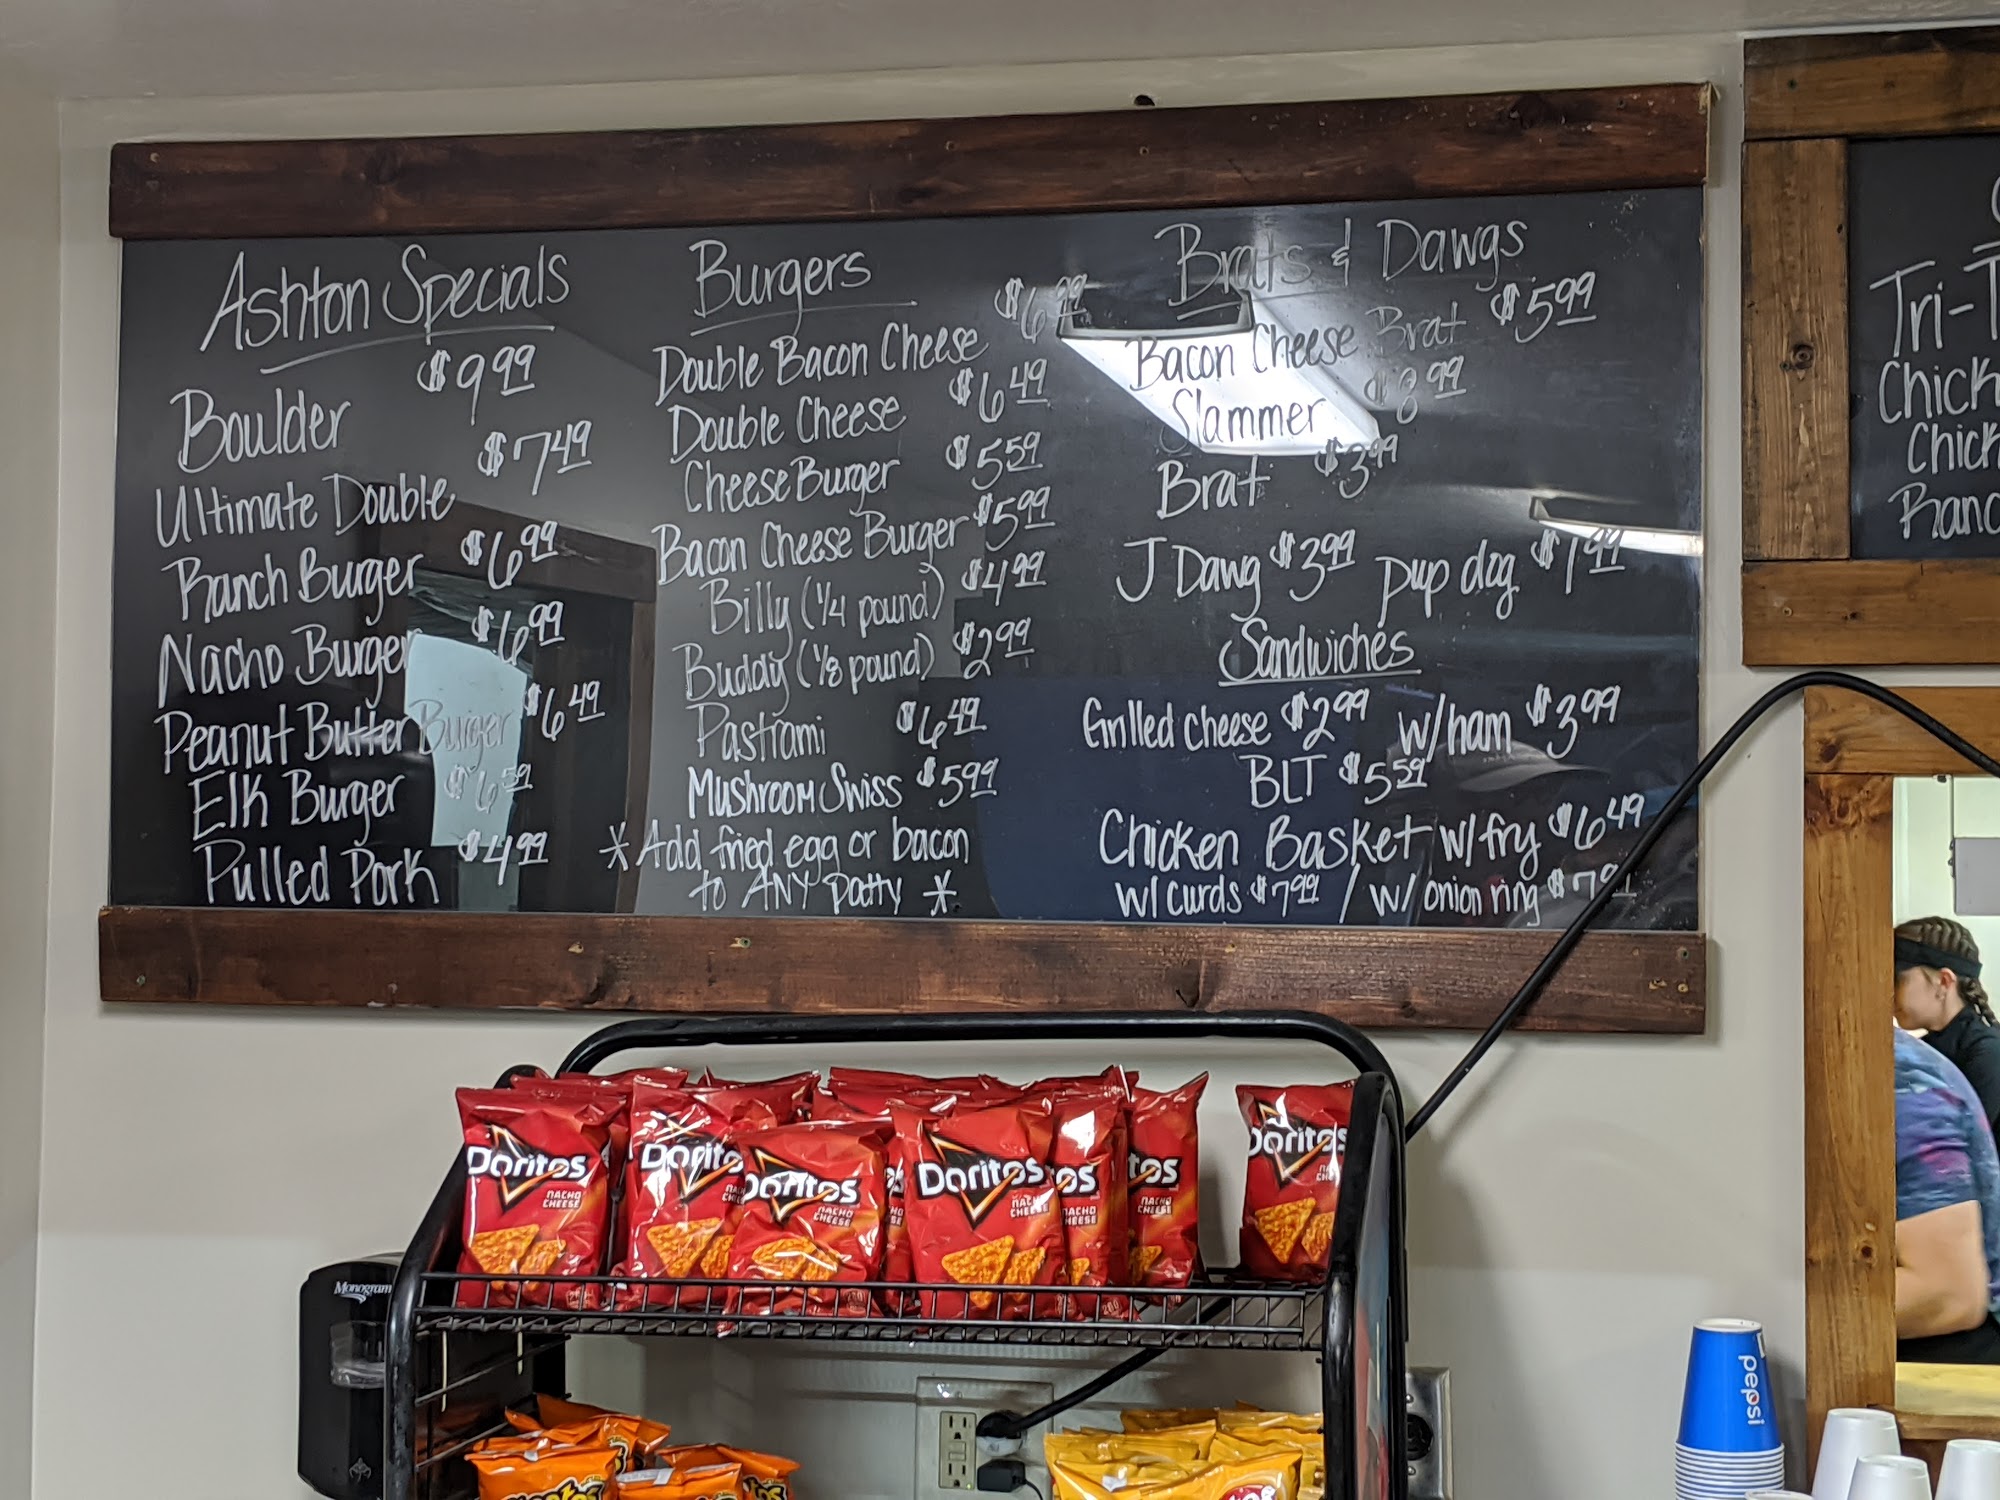 Ashton Specials
Boulder $9.99
Ultimate Double $7.49
Ranch Burger $6.99
Nacho Burger $6.99
Peanut Butter Burger $6.49
Elk Burger $6.59
Pulled Pork $4.99
Burgers
Double Bacon Cheese $6.99
Double Cheese $6.49
CheeseBurger $5.59
Bacon Cheese Burger $5.99
Billy (1/4 pound) $4.99
Buddy (1/8 pound) $2.99
Pastrami $6.49
Mushroom Swiss $5.99
* Add fried egg or bacon
to ANY patty *
Brats & Dawgs
Bacon Cheese Brat $5.99
Slammer $8.99
Brat $3.99
J Dawg $3.99 pup dog $1.99
Sandwiches
Grilled cheese $2.99 w/ham $3.99
BLT $5.59
Chicken Basket w/fry $6.49
w/curds $7.99 / w/onion ring
Tri-T
Chick
Chick
Ranc
Doritos
NACHO
CHEESE
Doritos
Doritos
NACHO
CHEESE
Doritos
NACHO
CHEESE
tos
NACHO
CHEESE
Doritos
Monogram
pepsi